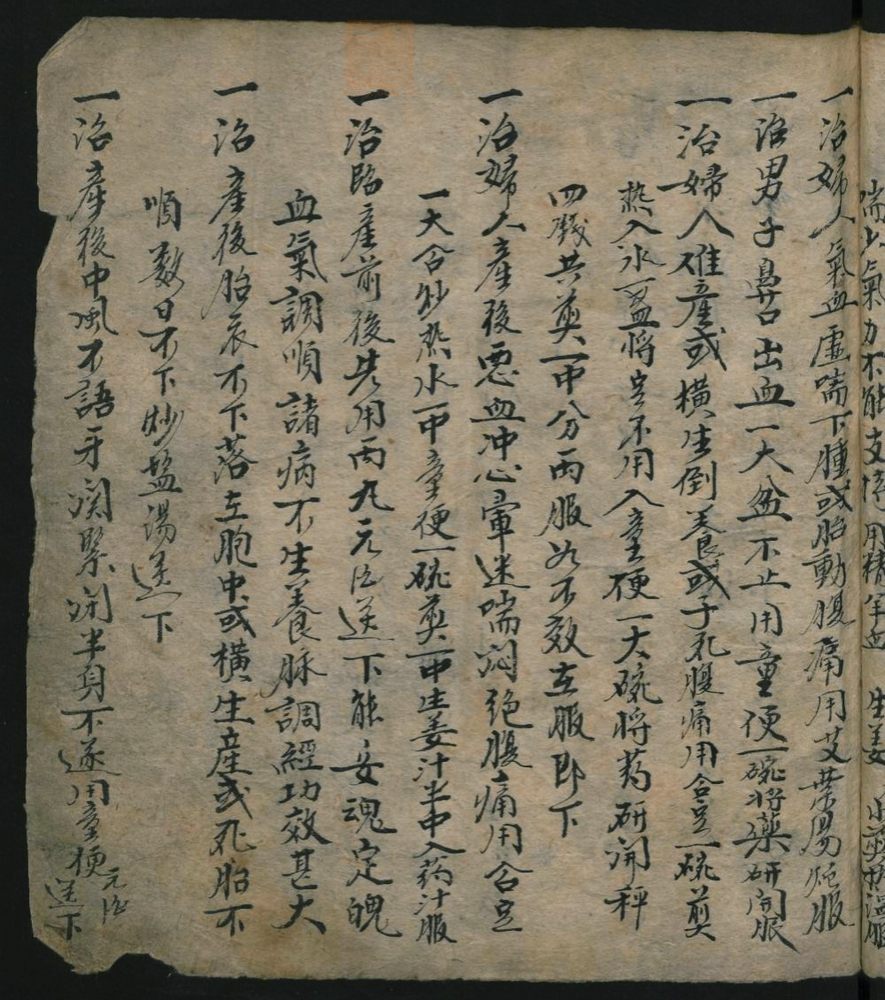 喘少氣力不能支持用精羊血 生姜 水煎 溫服
一治婦人氣血虛喘下腫或胎動腹痛用艾葉湯 服
一治男子鼻世出血一大盆不止用童便一碗将藥研開服
一治婦人难產或橫生倒養或子死腹痛用合豆一碗煎
熱入水一盅将豆不用入童便一大碗将药研開秤
四戔共煎一中分兩服如不效左服即下
一治婦人產後惡血冲心暈迷喘悶绝腹痛用合豆
一大合炒熱水一中童便一碗煎一中生姜汁半中入药汁服
一治臨產前後先用丙九元酒送下能安魂定魄
血氣調順諸病不生養脉調經功效甚大
一治產後胎衣不下落左胞中或橫生產或死胎不
順數日不下炒盐湯送下
一治產後中風不語牙関緊闭半身不遂用童便元酒
送下